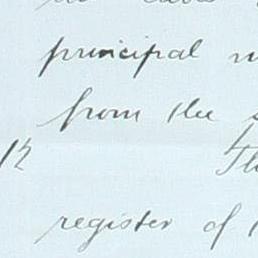 principal
from the
12
register of